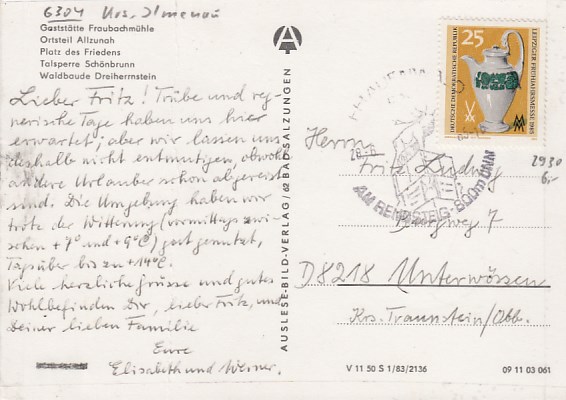 6304 Krs. Ilmenau
Gaststätte Fraubachmühle
Ortsteil Allzunah
Platz des Friedens
Talsperre Schönbrunn
Waldbaude Dreiherrnstein
Lieber Fritz! Trübe und reg-
nerische Tage haben uns hier
erwartet; aber wir lassen uns
deshalb nicht entmutigen, obwohl
andere Urlauber schon abgereist
sind. Die Umgebung haben wir
trotz der Witterung (vormittags zwi-
schen +7° und +9°C) gut genutzt,
Tagsüber bis zu +14°C.
Viele herzliche Grüsse und gutes
Wohlbefinden Dir, lieber Fritz, und
Deiner lieben Familie
Eure
Elisabeth und Werner.
AUSLESE-BILD-VERLAG / 62 BAD SALZUNGEN
A
25
DEUTSCHE DEMOKRATISCHE REPUBLIK
LEIPZIGER FRÜHJAHRSMESSE 1983
AM RENNSTEIG - 800m ÜNN
2930
6,-
Herrn
Fritz Ludwig
Burgweg 7
D8218 Unterwössen
Krs. Traunstein/Obb.
V 11 50 S 1/83/2136
09 11 03 061